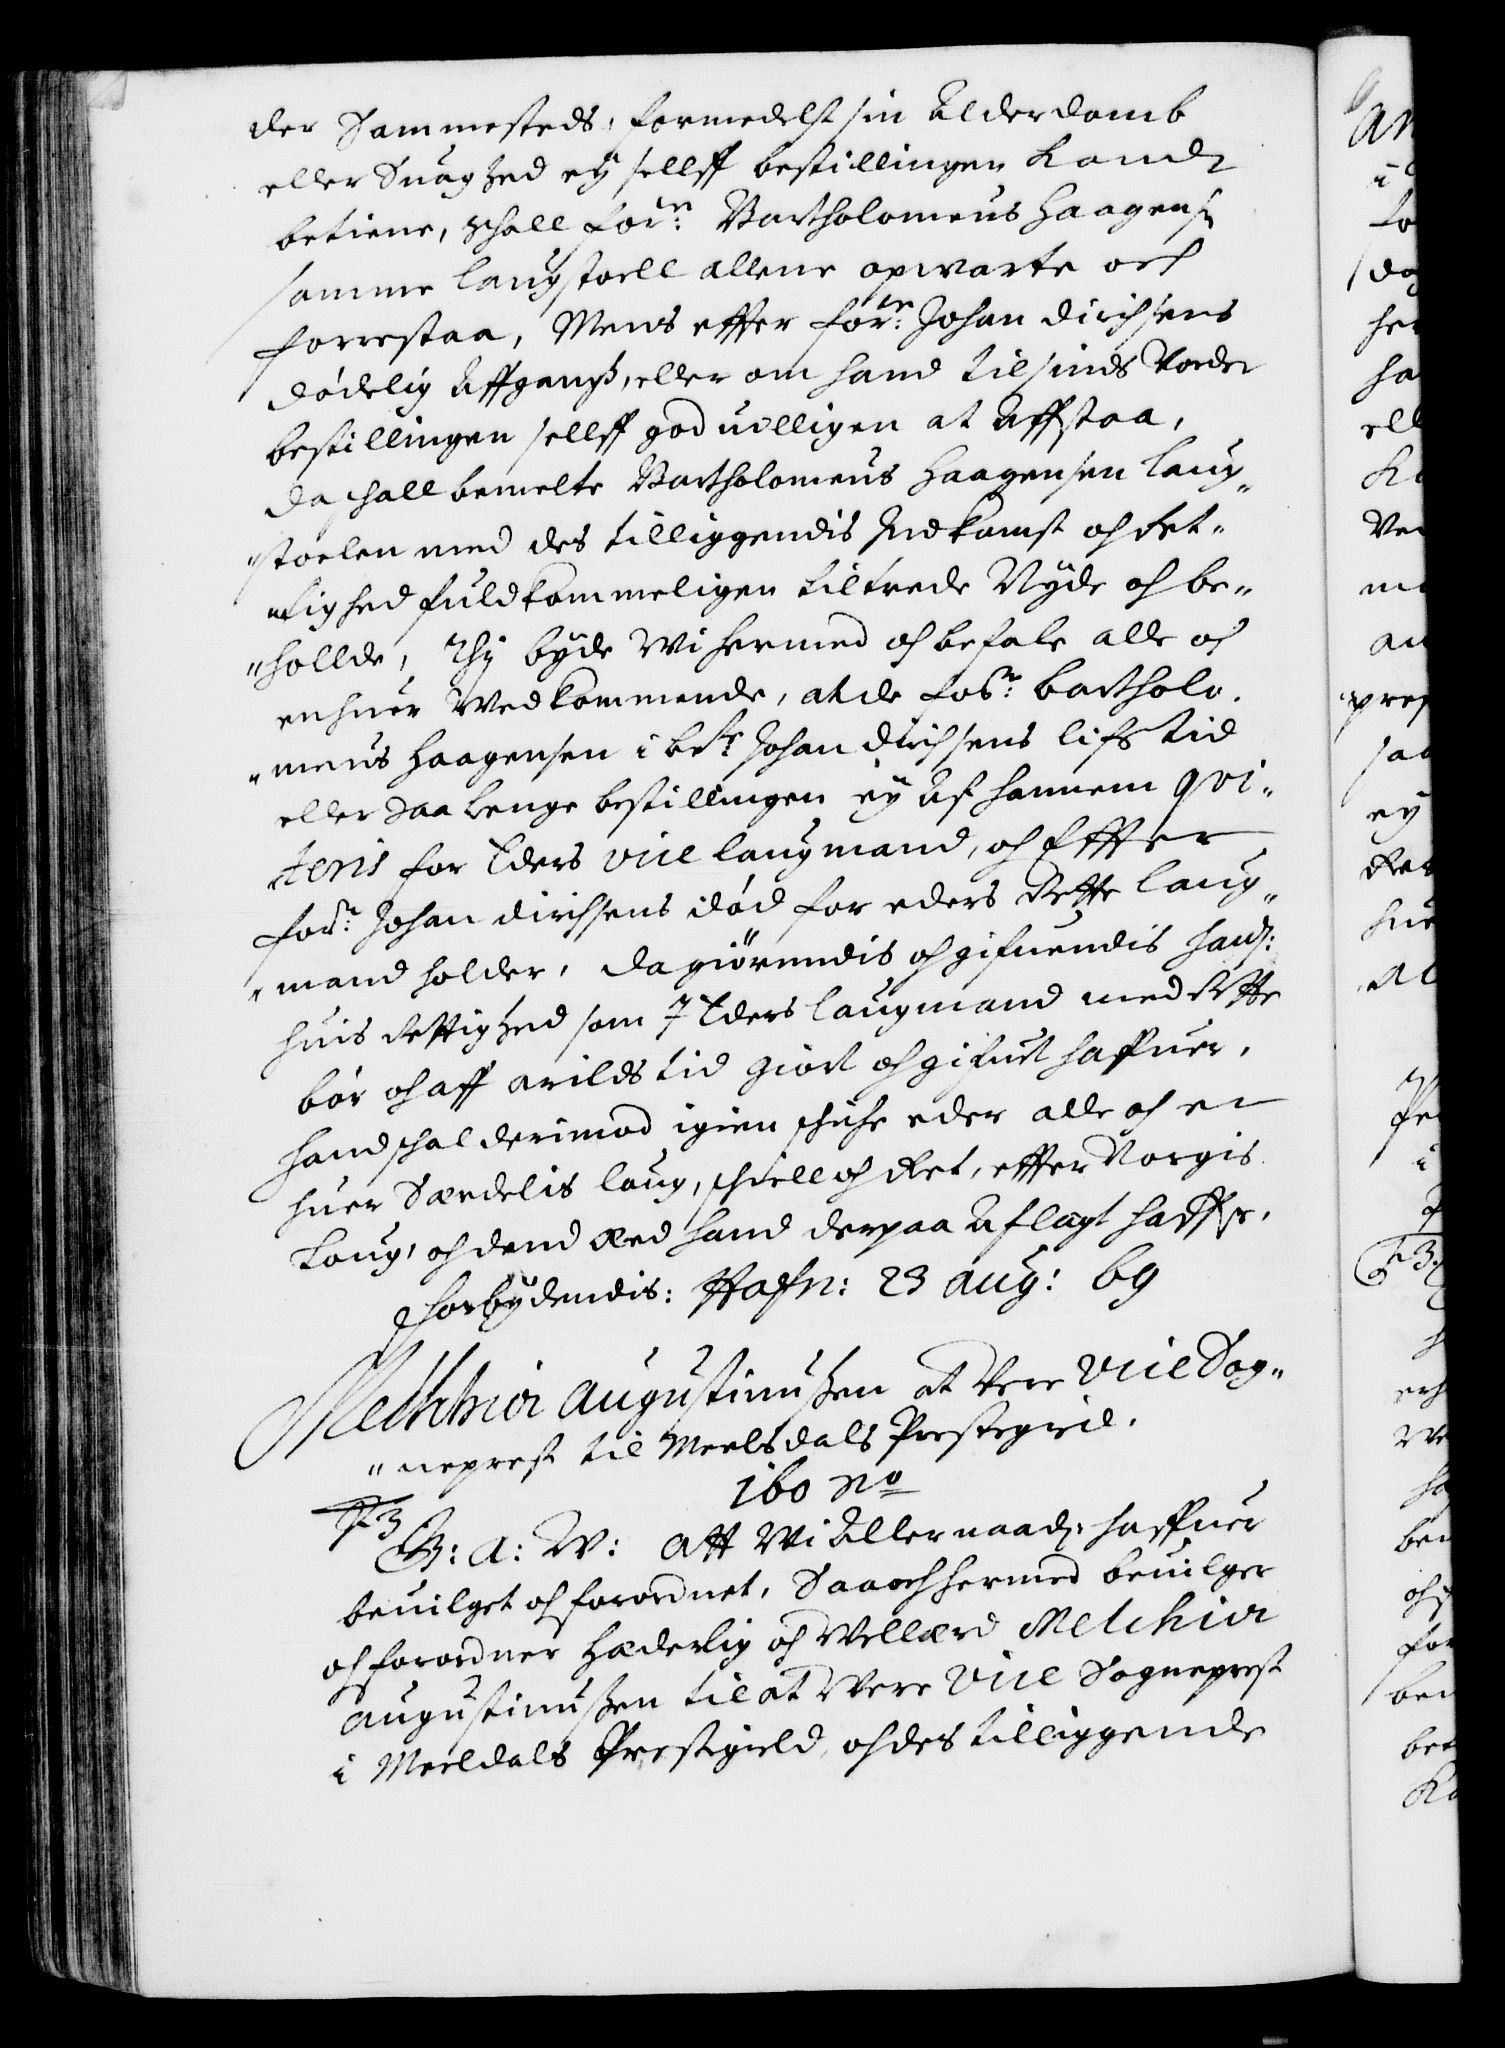 der Sammesteds, formedelst sin Alderdomb
eller Suaghed ey sellff bestillingen kand
betiene, schall forn: Bartholomeus Haagens:
samme laugstoell allene opwarte och
forrestaa, Mens effter forn: Johan Dirchsens
dødelig Affgang, eller om hand tilsinds worder
bestillingen sellff goduilligen at Affstaa,
da schall bemelte Bartholomeus Haagensen laug„
„stoelen med des tilliggendis Indkomst och Ret„
„tighed fuldkommeligen tiltrede Nyde och be„
„hollde, Thi byde Wi hermed och befale alle och
enhuer Wedkommende, at de forsn: Bartholo„
„meus Haagensen i bete Johan Dirchsens lifs tid
eller saa lenge bestillingen ey Af hannem qvi„
teris for Eders vice laugmand, och Effter
forsn: Johan Dirchsens død for eders Rette laug„
„mand holder, da giörendis och gifuendis hand:
huis Rettighed som I Eders laugmand med Rette
bør och aff arilds tid giort och gifuet haffuer,
hand schal derimod igien schaffe eder alle och en
huer Særdelis laug, schiell och Ret, effter Norgis
Laug, och dend Æd hand derpaa Aflagt haffr,
Forbydendis: Hafn: 23 aug: 69
Melchior Augustinussen at Were Vice Sog„
„neprest til Meelsdals Prestegield.
160 No
F3 G: A: W: Att Wi Allernaad: haffuer
beuilget och forordnet, Saa och hermed beuilger
och forordner Hæderlig och Wellærd Melchior
Augustinussen til at Were Vice Sogneprest
i Meeldals Prestigield, och des tilliggende